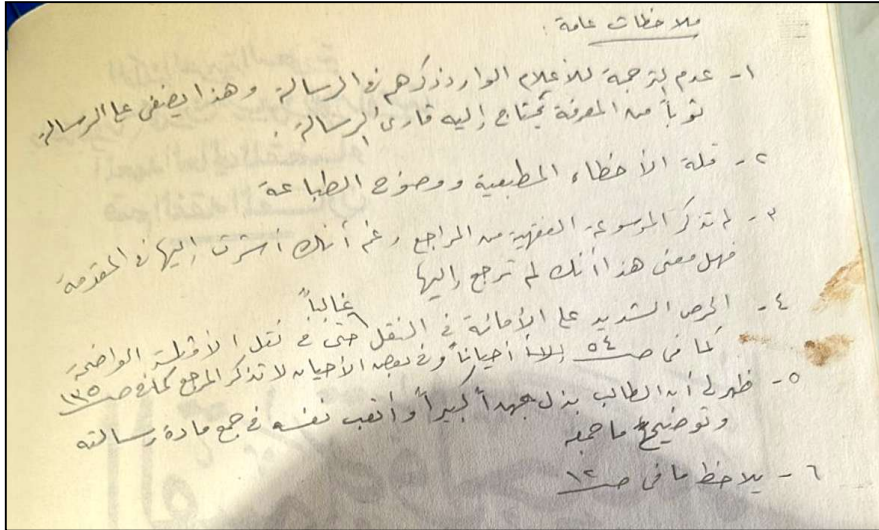 ملاحظات عامة:
١- عدم الترجمة للأعلام الوارد ذكرهم في الرسالة وهذا يضفي على الرسالة
ثوباً من المعرفة يحتاج إليه قارئ الرسالة.
٢- قلة الأخطاء المطبعية ووضوح الطباعة
٣- لم تذكر الموسوعة الفقهية من المراجع رغم أنك أشرت إليها في المقدمة
فهل معنى هذا أنك لم ترجع إليها
غالباً
٤- الحرص الشديد على الأمانة في النقل حتى في نقل الواضحة
كما في صـ ٥٤ إلا أحياناً وفي بعض الأحيان لا تذكر المرجع كما في صـ ١٣٥
٥- ظهر لي أن الطالب بذل جهداً كبيراً وأتعب نفسه في جمع مادة رسالته
وتوضيح ما جمعه
٦- يلاحظ ما في صـ ١٢